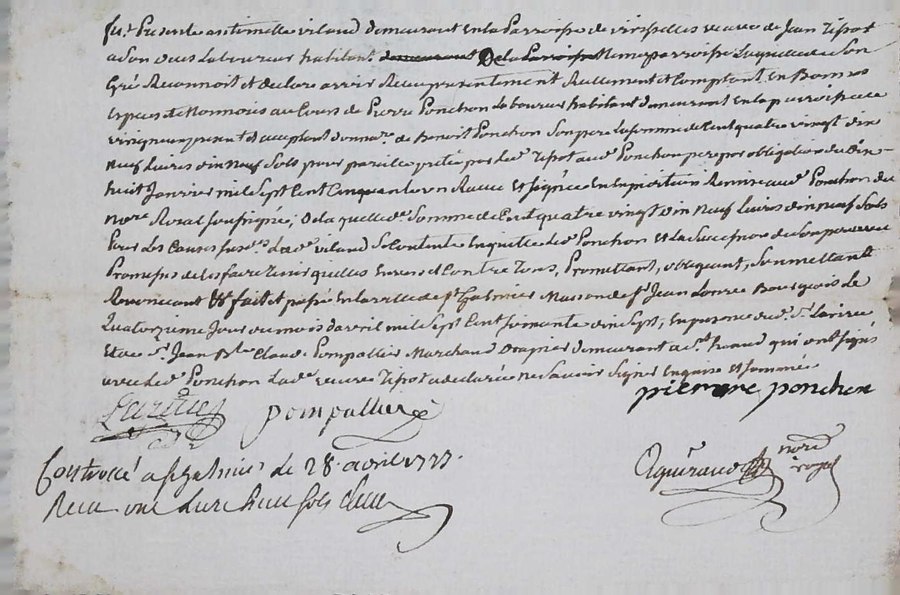 fut Presente antoinette vilaud demeurant en la Parroisse de viricelles veuve de Jean Tipot
a Son vieu Laboureur habitant demeurant De la Parroisse meme parroisse Laquelle de Son
Gré Reconnoit et declare avoir Receu presentement Reellement et Comptant En Bonnes
Especes de Monnoies au Cours de Pierre Ponchon Laboureur habitant demeurant En la parroisse de
present et acceptant de Benoit Ponchon Son pere La somme de Cent quatre vingt dix
Neuf Livres dix Neuf Sols pour pareille pretée par Led. Tipot aud. Ponchon pere par obligation du Dix
huit Janvier mil Sept Cent Cinquante un Receue Et Signée Remise aud. Ponchon du
Nore. Royal Soussigné, De laquelle de. Somme de Cent quatre vingt dix Neuf Livres dix neuf Sols
Pour Les Causes susd. Lade. vilaud Se Contente En quitte led. Ponchon et La Succession de Son pere avec
Promesses de Les faire Tenir quittes Envers et Contre Tous, Promettant, obligeant, Soumettant
Renonceant fait et passé En la ville de St. Galmier Maison de Sr. Jean Bourgeois Le
Quatorzieme Jour du mois d'avril mil Sept Cent soixante dix Sept, En presence de Sr.
Et de Sr. Jean Bte. Claude Pompallier Marchand Drapier demeurant a St. qui ont Signés
avec led. Ponchon Lade. veuve Tipot a declarée ne Savoir Signer Enquise et Sommée
pierre ponchon
pompallier
Controllé a St Galmier le 28 avril 1777.
Receu une Livre huit sols
nore royal